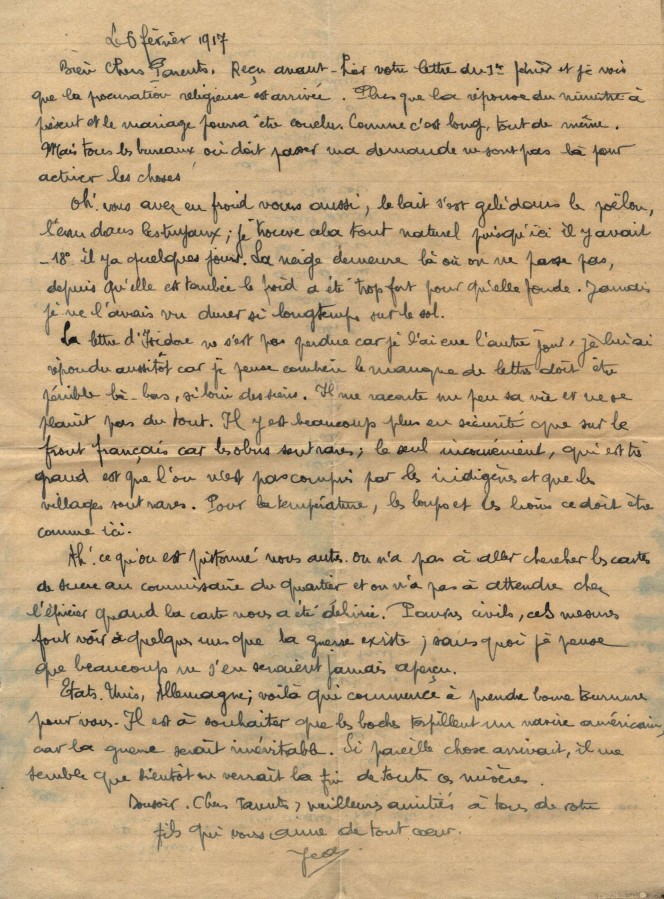 Le 6 février 1917
Bien Chers Parents. Reçu avant-hier votre lettre du 1er février et je vois
que la procuration religieuse est arrivée. Plus que la réponse du ministre à
présent et le mariage pourra être conclu. Comme c'est long, tout de même.
Mais tous les bureaux où doit passer ma demande ne sont pas là pour
activer les choses!
Oh! vous avez eu froid vous aussi, le lait s'est gelé dans le poêlon,
l'eau dans les tuyaux; je trouve cela tout naturel puisqu'ici il y avait
-18° il y a quelques jours. La neige demeure là où on ne passe pas,
depuis qu'elle est tombée le froid a été trop fort pour qu'elle fonde. Jamais
je ne l'avais vu durer si longtemps sur le sol.
La lettre d'Isidore ne s'est pas perdue car je l'ai eue l'autre jour, je lui ai
répondu aussitôt car je pense combien le manque de lettres doit être
pénible là-bas, si loin des siens. Il me raconte un peu sa vie et ne se
plaint pas du tout. Il y est beaucoup plus en sécurité que sur le
front français car les obus sont rares; le seul inconvénient, qui est très
grand est que l'on n'est pas compris par les indigènes et que les
villages sont rares. Pour la température, les loups et les ce doit être
comme ici.
Ah! ce qu'on est pistonné nous autres. On n'a pas à aller chercher les cartes
de sucre au commissaire du quartier et on n'a pas à attendre chez
l'épicier quand la carte vous a été délivrée. Pauvres civils, ces mesures
font voir à quelques uns que la guerre existe; sans quoi je pense
que beaucoup ne s'en seraient jamais aperçu.
Etats-Unis, Allemagne; voilà qui commence à prendre bonne tournure
pour nous. Il est à souhaiter que les boches torpillent un navire américain,
car la guerre serait inévitable. Si pareille chose arrivait, il me
semble que bientôt on verrait la fin de toutes ces misères.
Bonsoir. Chers Parents, meilleurs amitiés à tous de votre
fils qui vous aime de tout cœur.